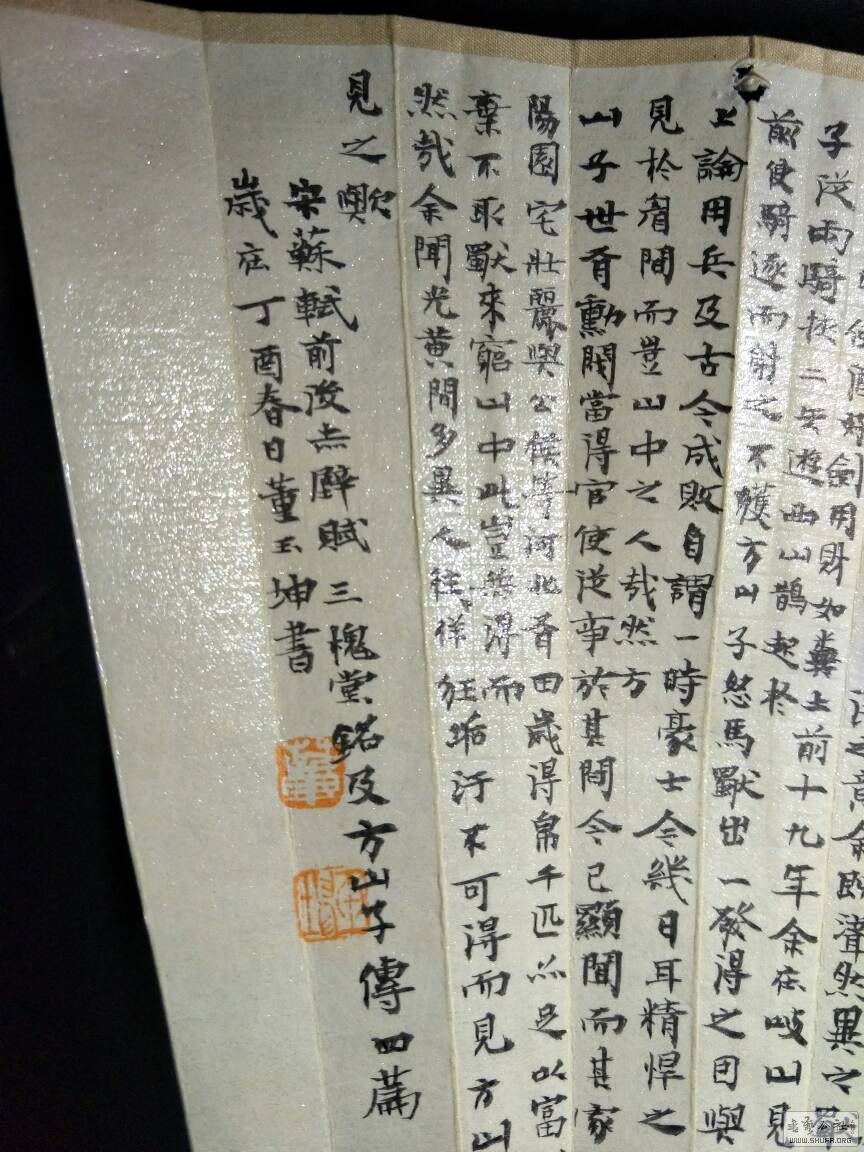 子從兩騎挾二矢遊西山鵲起於
前使騎逐而射之不獲方山子怒馬獸出一發得之因與
上論用兵及古今成敗自謂一時豪士今幾日耳精悍之
見於眉間而豈山中之人哉然方
山子世有勳閥當得官使從事於其間今已顯聞而其家
陽園宅壯麗與公候等河北有田歲得帛千匹亦足以富
棄不取獸來窮山中此豈無得而
然哉余聞光黃間多異人往往佯狂垢汙不可得而見方山
見之歟
宋蘇軾前後赤壁賦三槐堂銘及方山子傳四篇
歲在丁酉春日董玉坤書
WWW.SHUFA.ORG